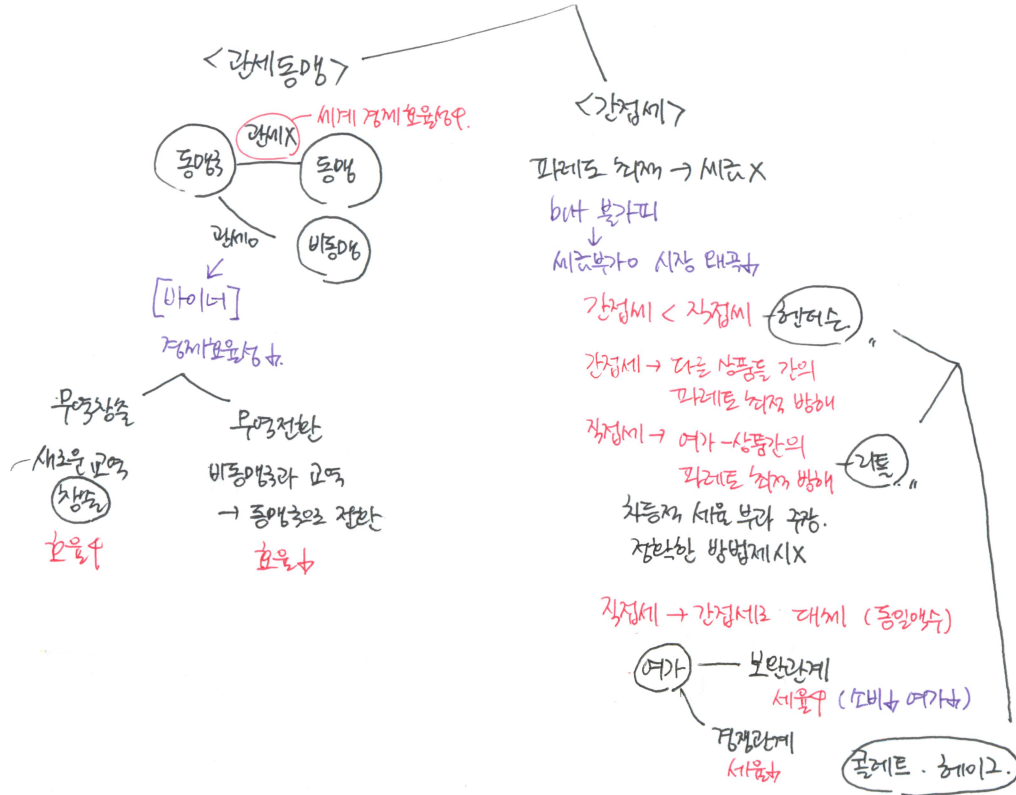 <관세동맹>
관세X
세계 경제효율성↑.
동맹국
동맹
관세O
비동맹
[바이너]
경제효율성↓.
무역창출
새로운 교역
창출
효율↑
무역전환
비동맹국과 교역
→ 동맹국으로 전환
효율↓
<간접세>
파레토 최적 → 세금X
but 불가피
↓
세금부가O 시장 왜곡↓
간접세 < 직접세 - 헨더슨.
간접세 → 다른 상품들 간의
파레토 최적 방해
직접세 → 여가-상품간의
파레토 최적 방해 - 리틀
차등적 세율 부과 주장.
정확한 방법제시X
직접세 → 간접세로 대체 (동일액수)
여가 — 보완관계
세율↑ (소비↓ 여가↓)
경쟁관계
세율↓
콜레트 · 헤이그.